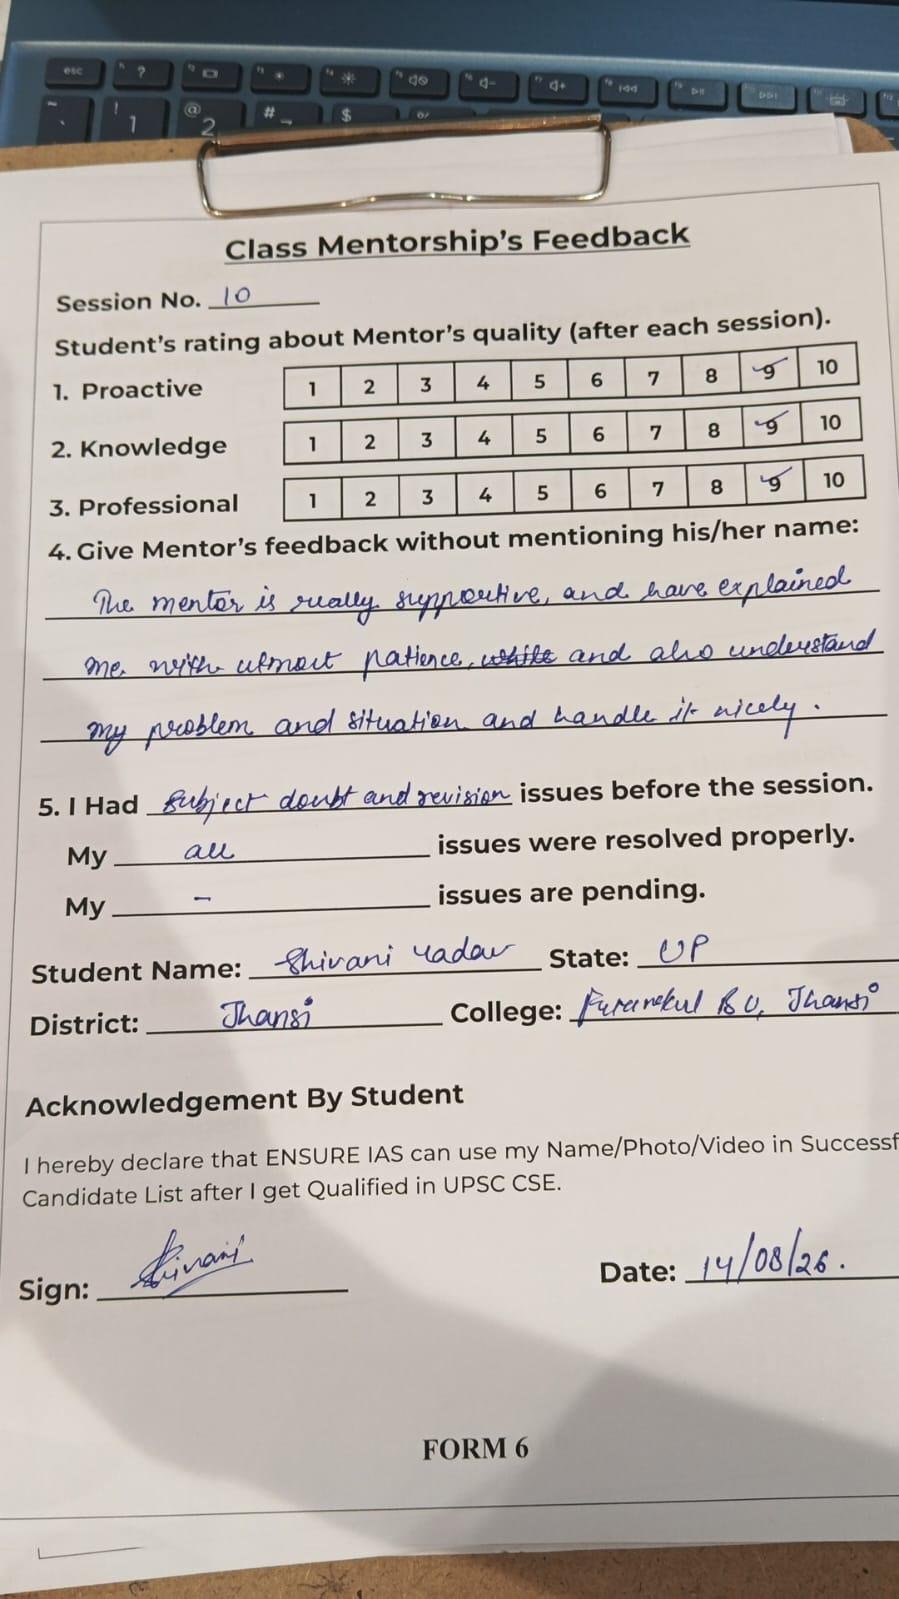 esc
?
!
1
@
2
#
$
Class Mentorship's Feedback
Session No. 10
Student's rating about Mentor's quality (after each session).
1. Proactive 1 2 3 4 5 6 7 8 9 10
2. Knowledge 1 2 3 4 5 6 7 8 9 10
3. Professional 1 2 3 4 5 6 7 8 9 10
4. Give Mentor's feedback without mentioning his/her name:
The mentor is really supportive, and have explained
me with utmost patience, while and also understand
my problem and situation and handle it nicely.
5. I Had subject doubt and revision issues before the session.
My all issues were resolved properly.
My - issues are pending.
Student Name: Shivani Yadav State: UP
District: Jhansi College: BU, Jhansi
Acknowledgement By Student
I hereby declare that ENSURE IAS can use my Name/Photo/Video in Successf
Candidate List after I get Qualified in UPSC CSE.
Sign: Shivani Date: 14/08/26.
FORM 6